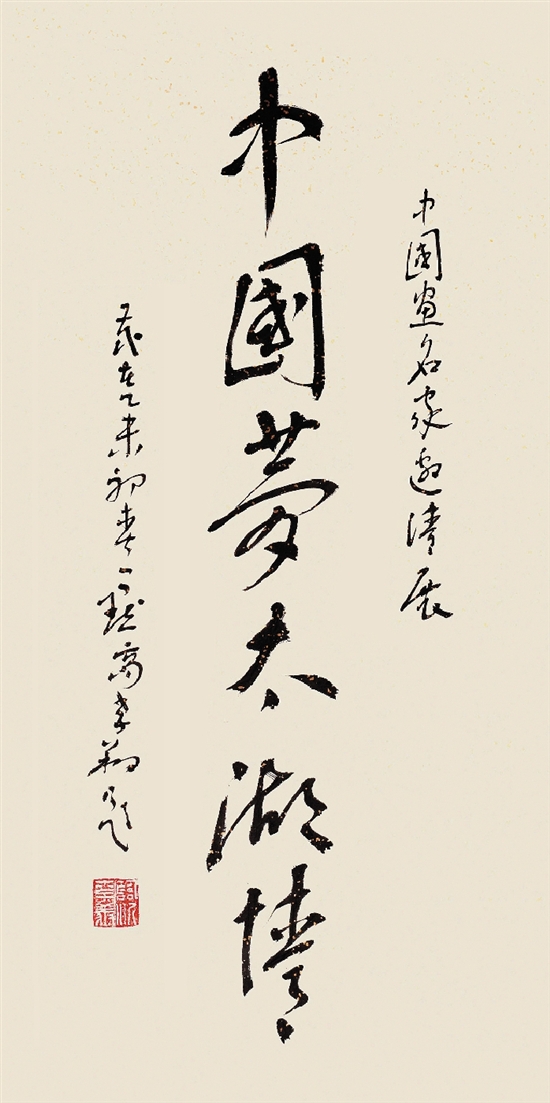 中國畫名家邀請展
中國夢太湖情
歲在乙未初春一翔題